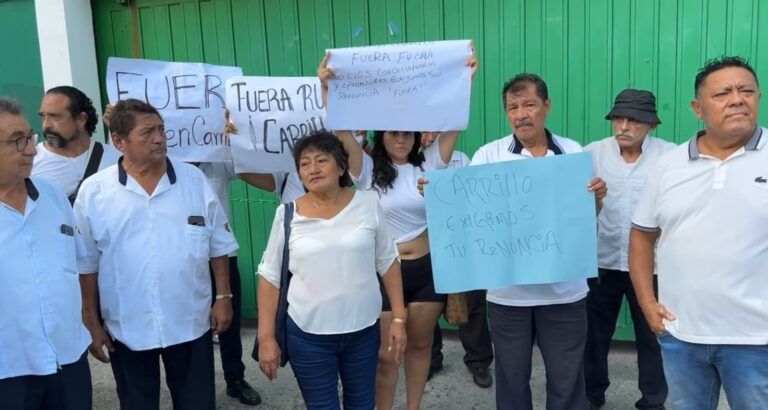 FUER
en Carri
FUERA RU
CARRILL
FUERA FUERA
Y OPERADORES EXIGIMOS SU
RENUNCIA "FUERA"
CARRILLO
EXIGIMOS
TU RENUNCIA